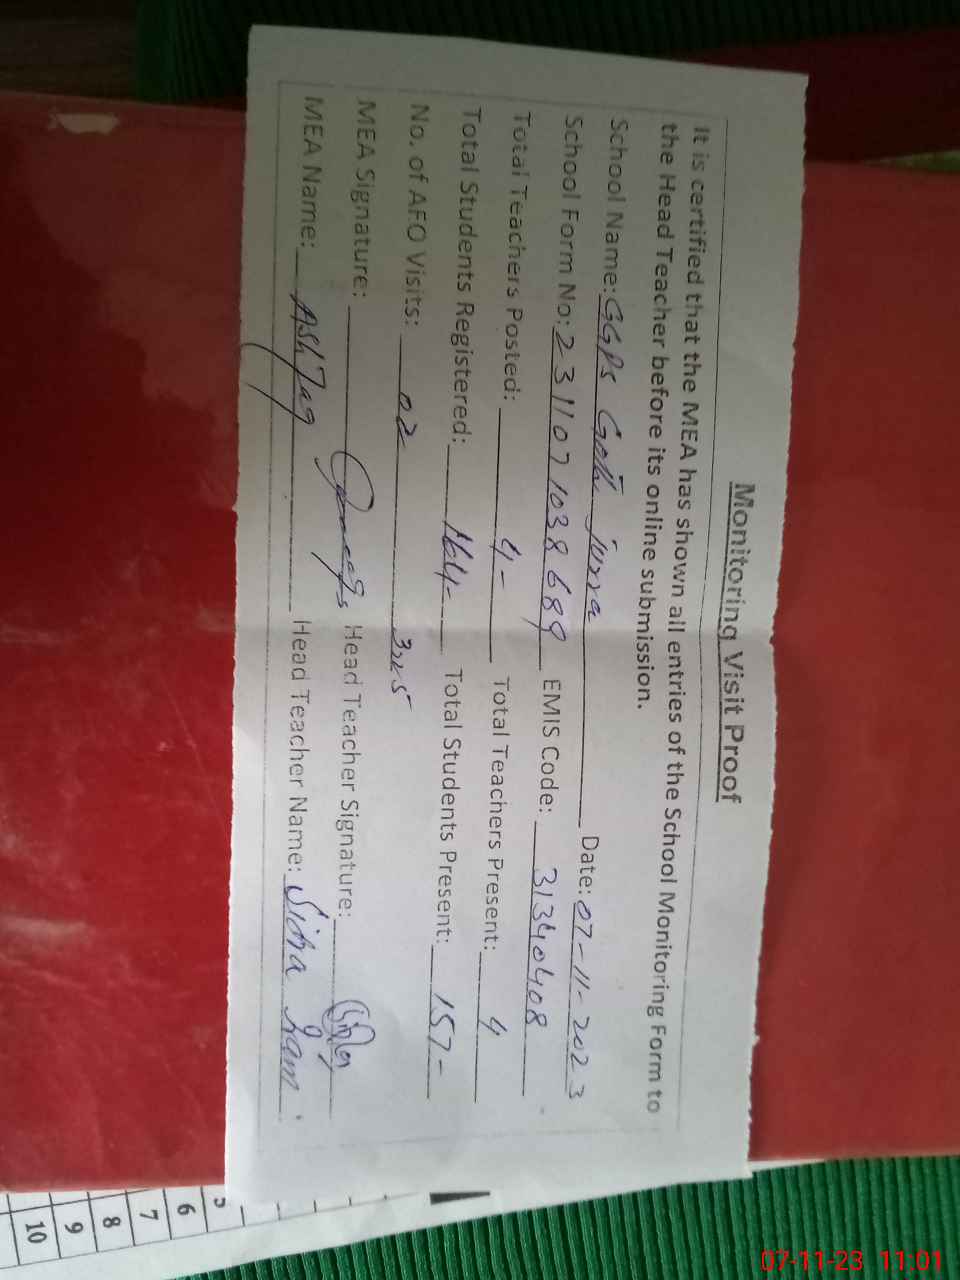 Monitoring Visit Proof
It is certified that the MEA has shown all entries of the School Monitoring Form to
the Head Teacher before its online submission.
School Name: GGPS Goth jurra Date: 07-11-2023
School Form No: 2311071038689 EMIS Code: 31340408
Total Teachers Posted: 4- Total Teachers Present: 4
Total Students Registered: 164- Total Students Present: 157-
No. of AEO Visits: 02
MEA Signature: Head Teacher Signature:
MEA Name: Ashfaq Head Teacher Name: Sidra
5
6
7
8
9
10
07-11-23 11:01